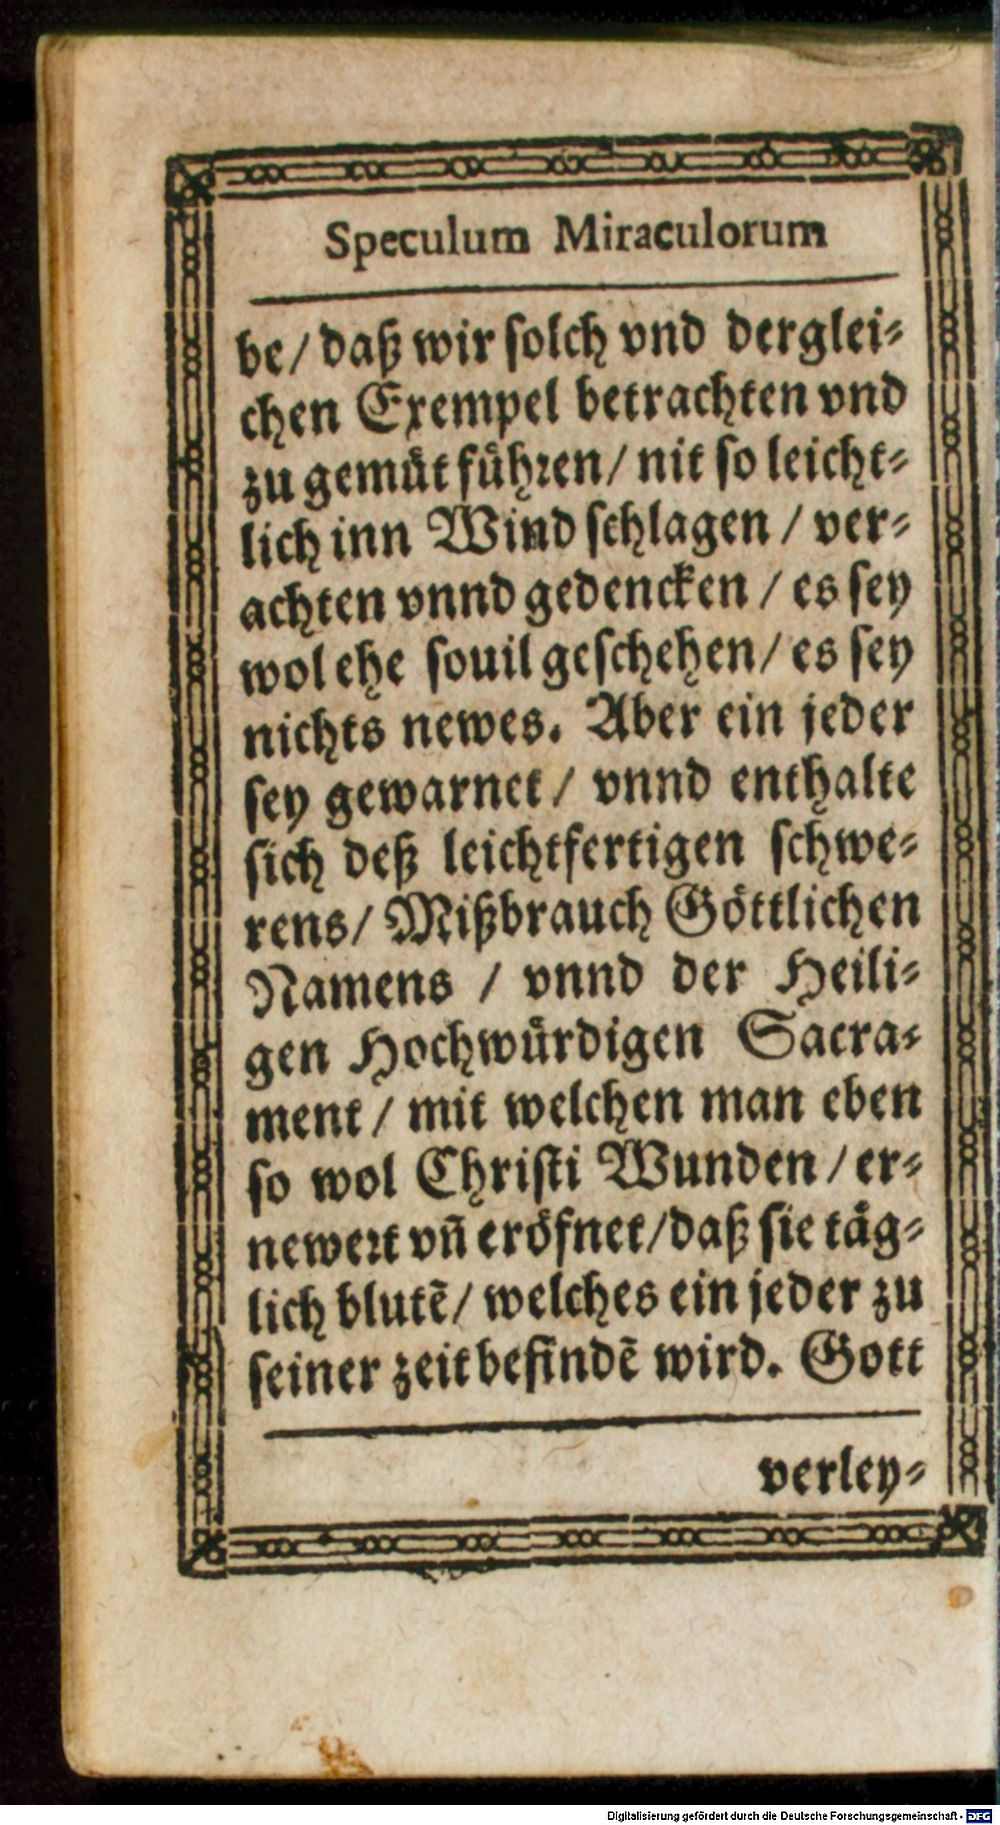 Speculum Miraculorum
be/ daß wir solch vnd derglei-
chen Exempel betrachten vnd
zu gemüt führen/ nit so leicht-
lich inn Wind schlagen / ver-
achten vnnd gedencken / es sey
wol ehe souil geschehen/ es sey
nichts newes. Aber ein jeder
sey gewarnet / vnnd enthalte
sich deß leichtfertigen schwe-
rens/ Mißbrauch Göttlichen
Namens / vnnd der Heili-
gen Hochwürdigen Sacra-
ment / mit welchen man eben
so wol Christi Wunden / er-
newert vñ eröfnet/daß sie täg-
lich blutē/ welches ein jeder zu
seiner zeit befindē wird. Gott
verley-
Digitalisierung gefördert durch die Deutsche Forschungsgemeinschaft - DFG